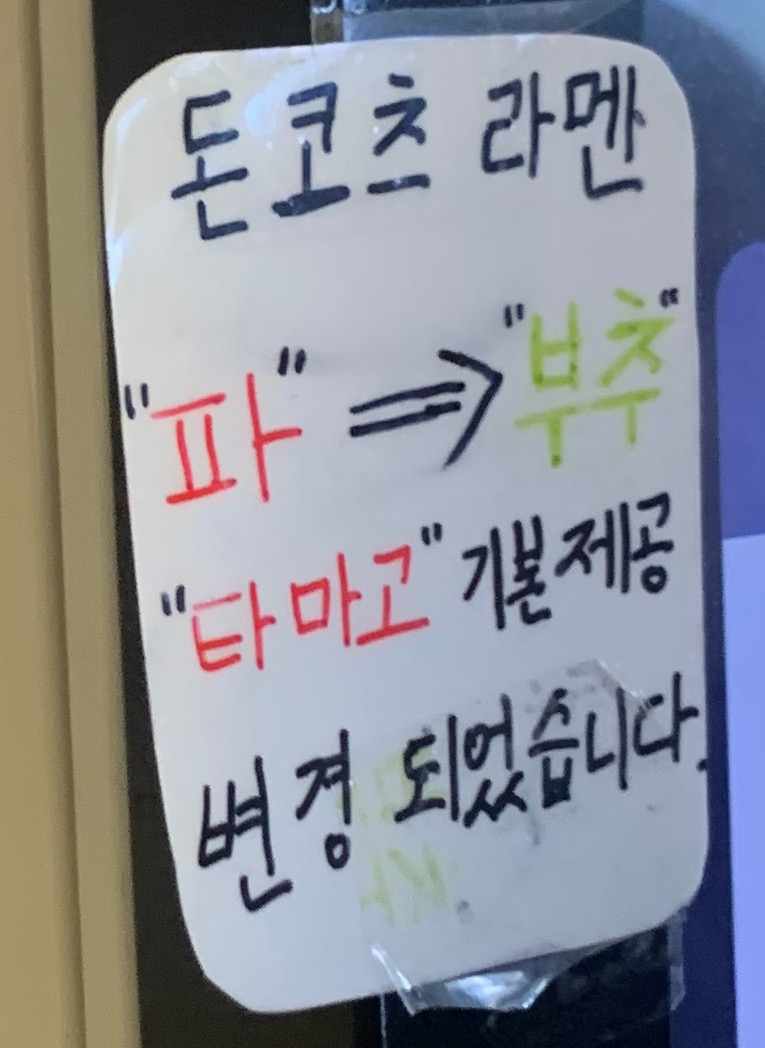 돈코츠 라멘
"파" ⇒ "부추"
"타마고" 기본제공
변경 되었습니다.